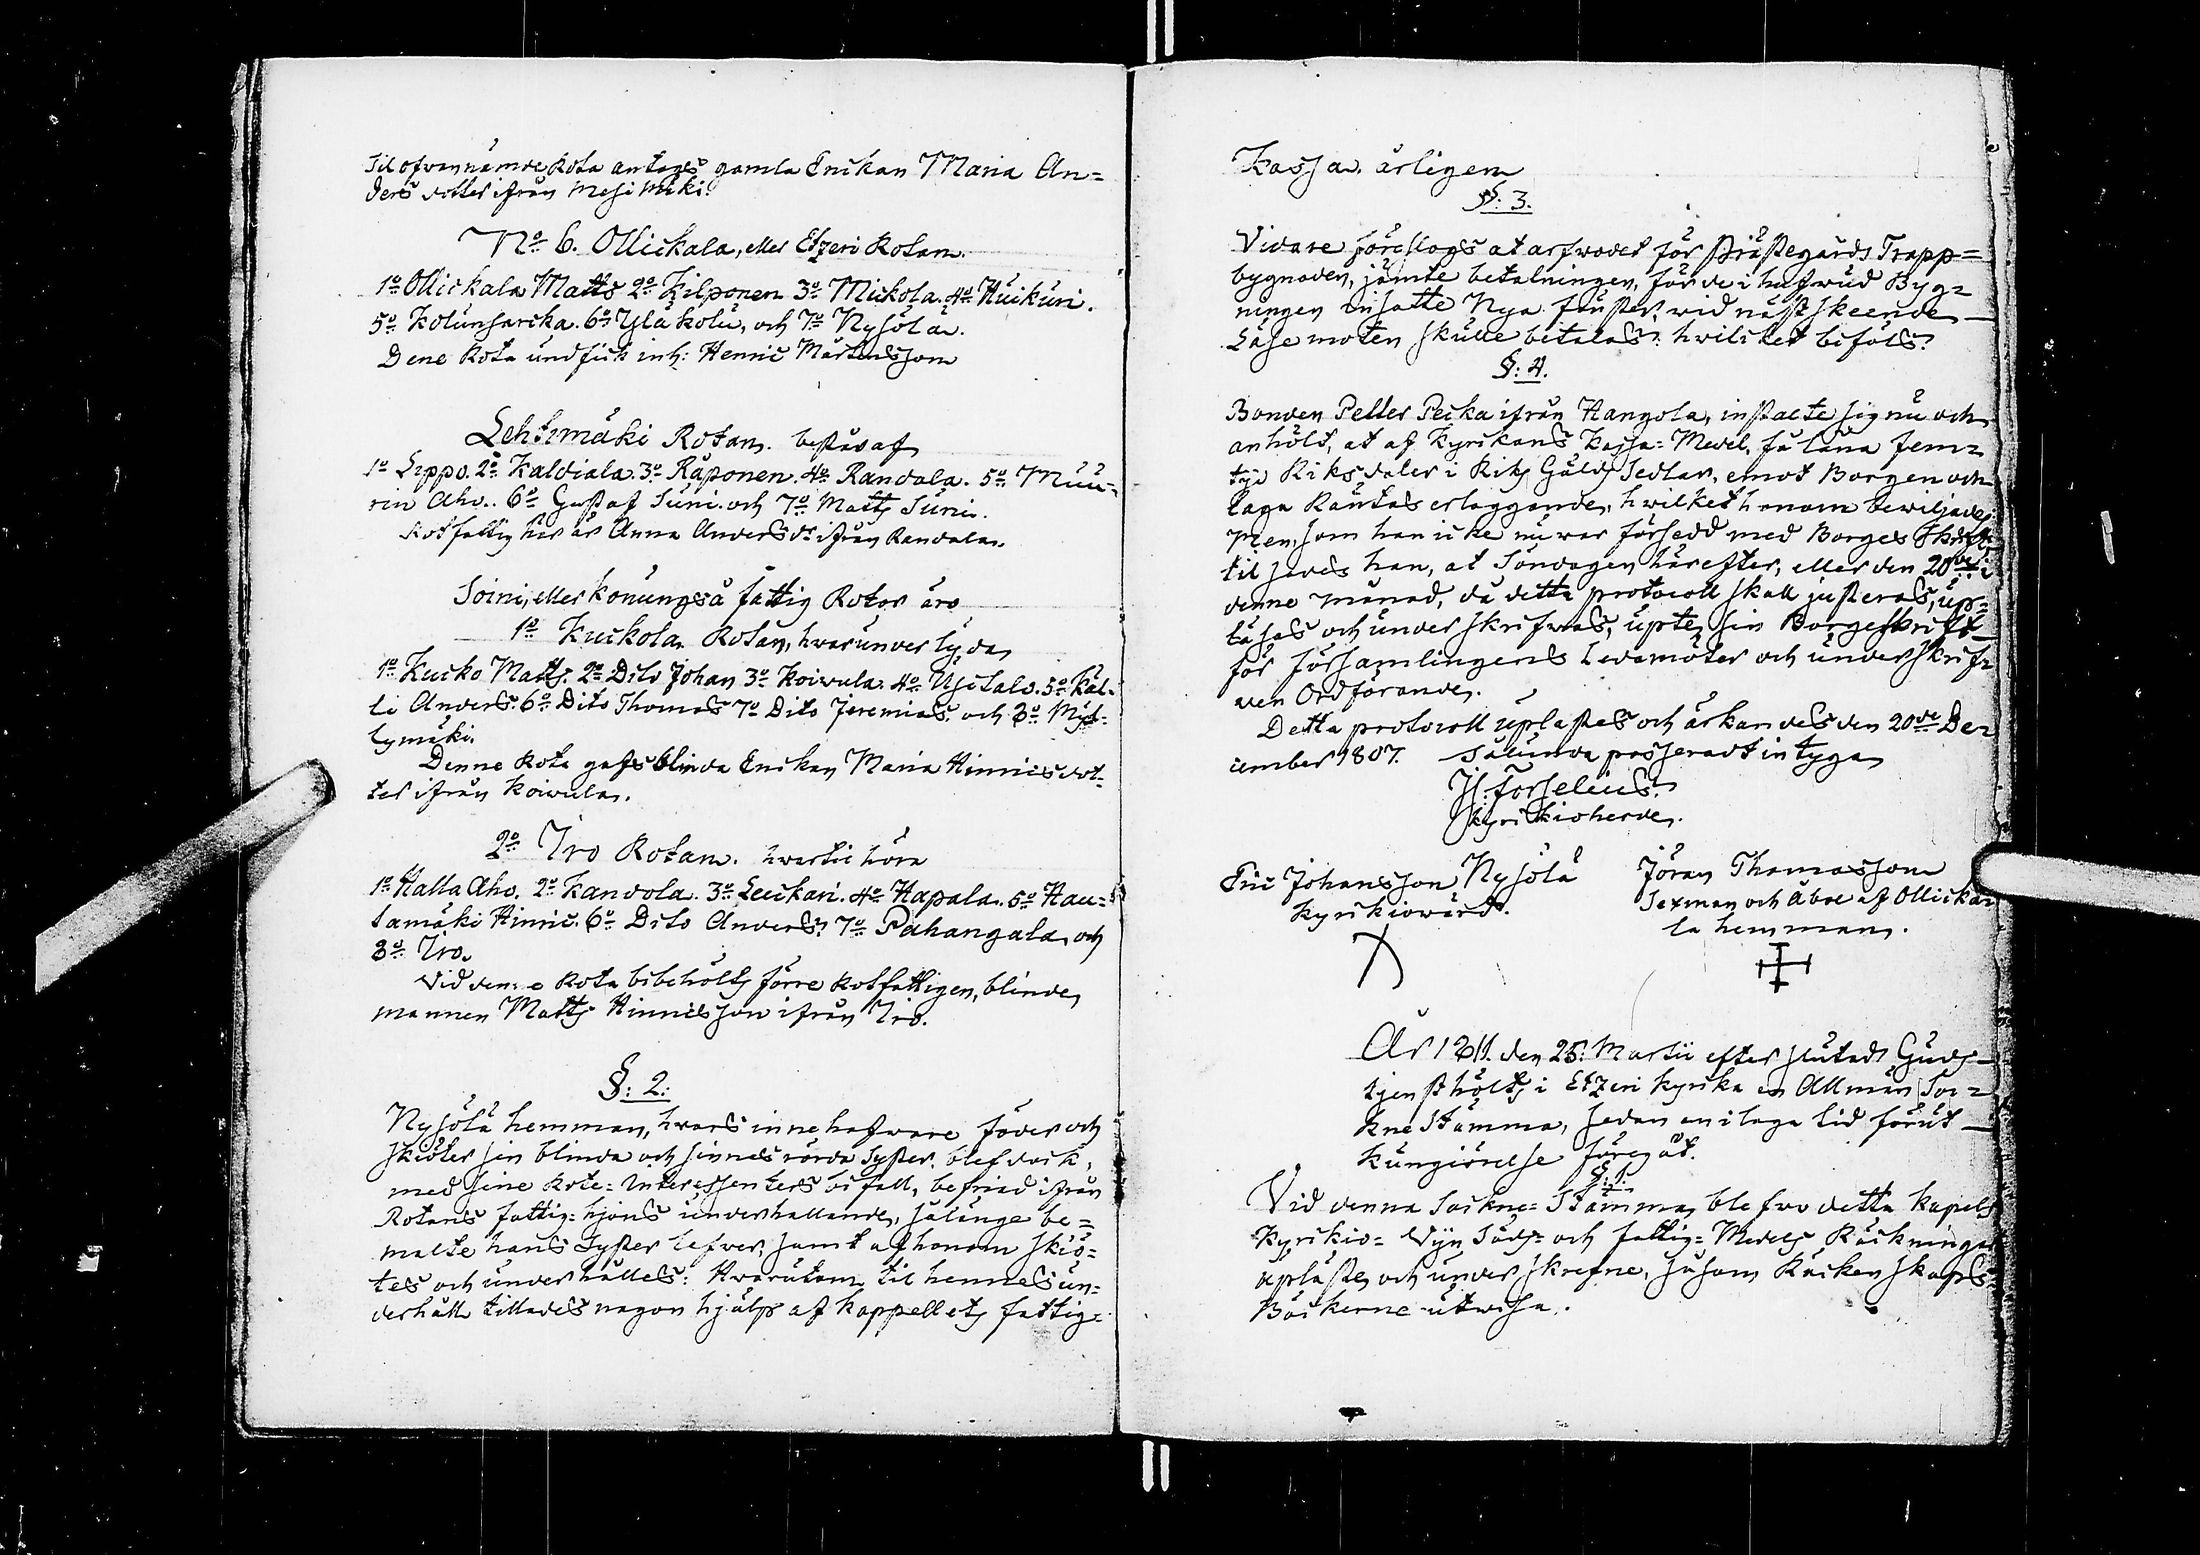 Til ofvannämde Rota antogs gamla Enckan Maria An=
ders dotter ifrån Mesimäki.
No 6. Ollickala, eller Etzeri Rotan.
1o Ollickala Matts 2o Kilponen 3o Mickola. 4o Huikuri.
5o Kolunsarcka. 6o Ylä kolu, och 7o Nysölä.
Dene Rota undfick inh: Henric Mårtensson
Lehtimäki Rotan. består af
1o Lippo. 2o Kaldiala. 3o Räponen. 4o Randala. 5o Muu=
rin Aho. 6o Gustaf Suni. och 7o Matts Suni.
Rotfattig här är Anna Anders dr ifrån Randala.
Soini, eller Konungså fattig Rotor äro
1o Kuckola Rotan, hvarunder lyda
1o Kucko Matts. 2o Dito Johan 3o Koivula. 4o Ujitalo. 5o Käl=
li Anders. 6o Dito Thomas 7o Dito Jeremias. och 8o Myl=
lymäki.
Denne Rota gafs blinda Enckan Maria Hinricsdot=
ter ifrån Koivula.
2o Iro Rotan. hvartil höra
1o Halla Aho. 2o Kandola. 3o Leuckari. 4o Hapala. 5o Hau=
tamäki Hinric. 6o Dito Anders. 7o Pahangala och
8o Iro.
Vid denne Rota bibehölts förre Rotfattigen, blinde
mannen Matts Hinricsson ifrån Iro.
§: 2:
Nysölä hemman, hvars innehafvare föder och
skiöter sin blinda och sinnesrörda Syster, blef dock,
med sine Rote=Interessenters bifall, befriad ifrån
Rotans fattig=hjons underhållande, sålänge be=
mälte hans Syster lefver, samt af honom skiö=
tes och underhålles: Hvarutom til hennes un=
derhåll tillades någon hjälp af kappellets fattig=
Kassa. årligen
§: 3.
Vidare föreslogs at arfvodet för Prästegårds Trapp=
bygnaden, jämte betalningen, för de i hufvud Byg=
ningen insatte Nya fönster, vid näst skeende
Läse möten skulle betalas: hvilcket bifölls.
§: 4.
Bonden Petter Pecka ifrån Hangola, instälte sig nu och
anhölt, at af Kyrckans Kassa=Medel, få låna Fem=
tijo Riksdaler i Riks Gälds Sedlar, emot Borgen och
laga Räntas erläggande, hvilket honom beviljades:
Men, som han icke nu var försedd med Borges Skrift
til sades han, at Söndagen härefter, eller den 20de i
denne månad, då detta protocoll skall justeras, up=
läsas och underskrifvas, upte sin Borgesskrift
för församlingens Ledamöter och underskrif=
ven Ordförande.
Detta protocoll uplästes och ärkändes den 20de De=
cember 1807. Sålunda passeradt intyga
Is: Forselius.
Kyrckioherde.
Eric Johansson Nysölä
Kyrckiovärd.
Jöran Thomasson
Sexman och Åboe af Ollicka=
la hemman.
År 1811. den 25: Martii efter slutad Guds=
tjenst hölts i Etzeri Kyrcka en Allmän Soc=
kne Stämma, sedan en i laga tid förut
kungiörelse föregåt.
§: 1.
Vid denna Sockne=Stämma blefvo detta Kapels
Kyrckio= Vijn Säds= och fattig=Medels Räckningar
upläste och underskrefne, såsom Räckenskaps
Böckerne utvisa.